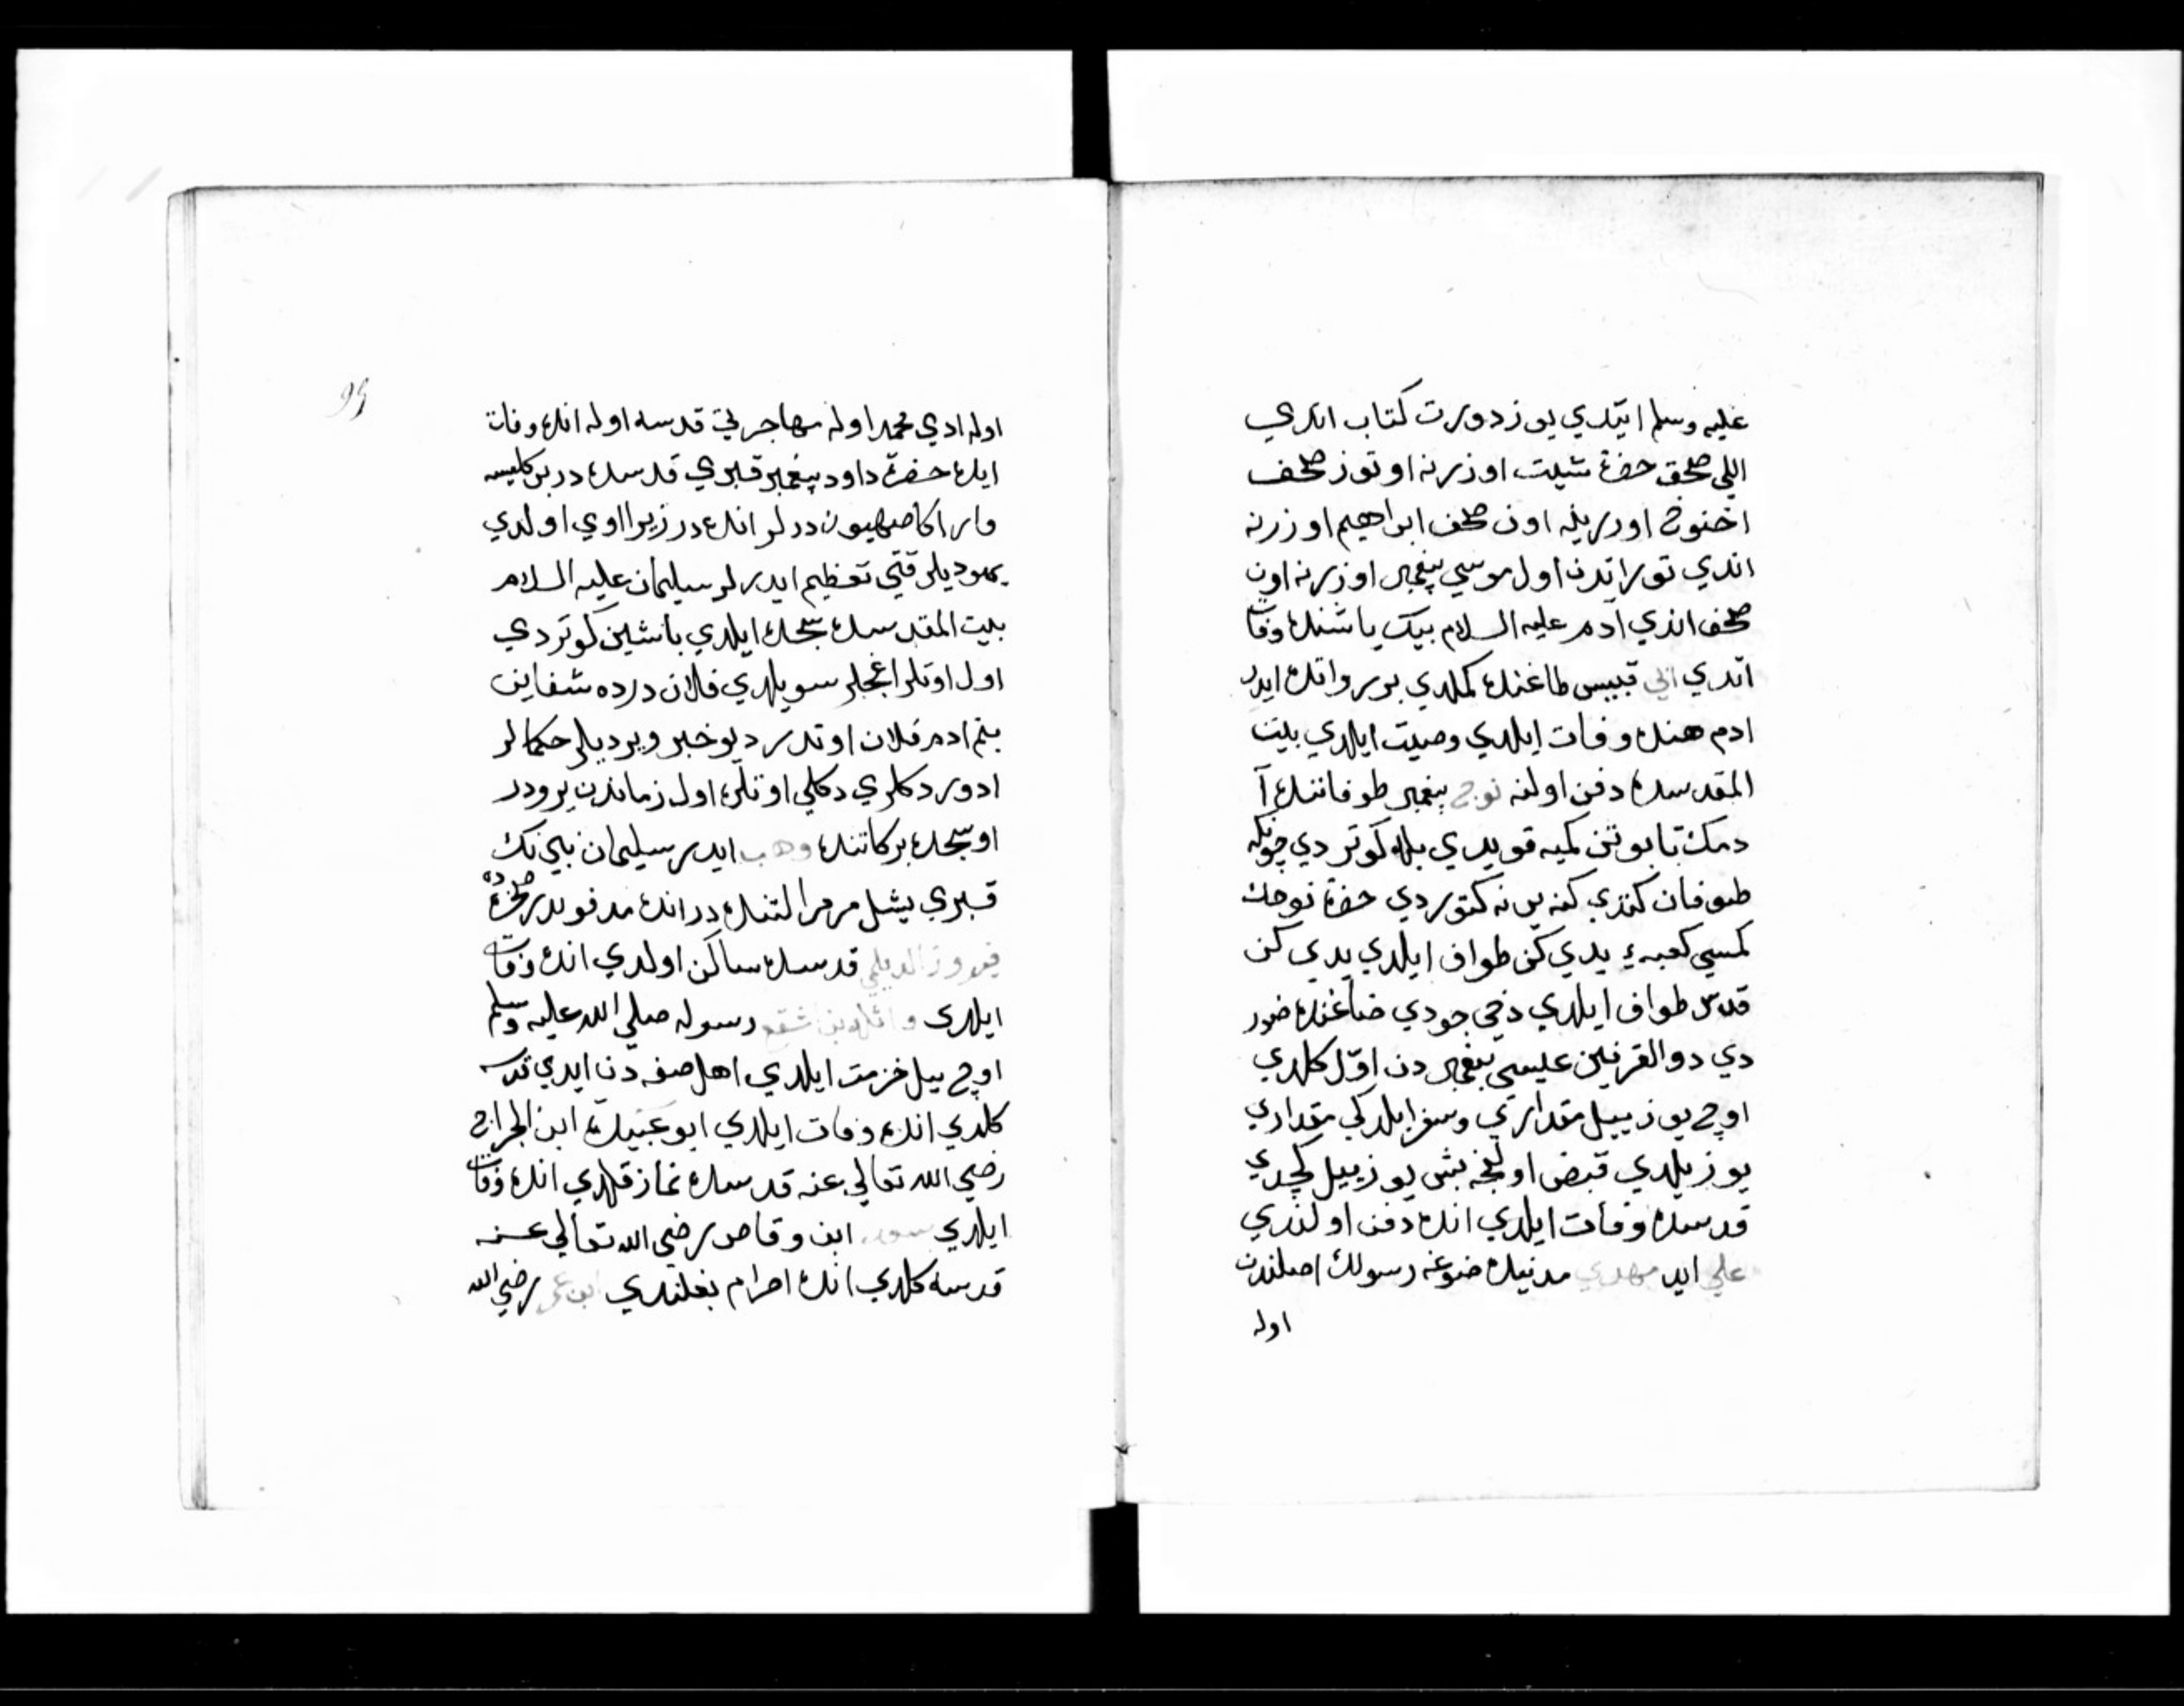 عليه وسلم ايتدي يوز دورت كتاب اندي
اللي صحف حضرة شيت اوزرنه اوتوز صحف
اخنوخ اوزرينه اون صحف ابراهيم اوزرنه
اندي توراتدن اول موسي پيغمبر اوزرنه اون
صحف اندي آدم عليه السلام بيك ياشنده وفات
اتدي قبيس طاغنده كملدي بو رواتده ايدر
ادم هنده وفات ايلدي وصيت ايلدي بيت
المقدسده دفن اولنه نوح پيغمبر طوفاننده آ
دمك تابوتن كميه قويدي بله كوتردي چونكه
طوفان كتدي كنه يرنه كتوردي حضرة نوحك
كمسي كعبه يي يدي كن طواف ايلدي يدي كن
قدس طواف ايلدي دخي جودي طاغنده طور
دي ذو القرنين عيسي پيغمبر دن اوّل كلدي
اوچ يوز ييل مقداري وسفر ايلدكي مقداري
يوز يلدي قبض اولنجه بش يوز ييل كچدي
قدسده وفات ايلدي انده دفن اولندي
علي ايدر مهدي مدنيده طوغه رسولك اصلندن
اوله
اوله ادي محمد اوله مهاجرتي قدسه اوله انده وفات
ايده حضرة داود پيغمبر قبري قدسده در بر كليسه
وار اكا صهيون درلر انده در زيرا اوي اولدي
يهوديلر قتي تعظيم ايدرلر سليمان عليه السلام
بيت المقدسده سجده ايلدي باشين كوتردي
اول اوتلر اغجلر سويلدي فلان درده شفاين
بنم ادم فلان اوتدر ديو خبر ويرديلر حكمالر
ادوردكلري دكلي اوتلره اول زماندن برودر
او سجده بركاتنده وهب ايدر سليمان نبي نك
قبري يشل مرمر التنده در انده مدفوندر صخره ده
فيروز الديلمي قدسده ساكن اولدي انده وفات
ايلدي رسوله صلي الله عليه وسلم
اوچ ييل خزمت ايلدي اهل صفه دن ايدي قدسه
كلدي انده وفات ايلدي ابو عبيده ابن الجراح
رضي الله تعالي عنه قدسده نماز قلدي انده وفات
ايلدي سعد ابن وقاص رضي الله تعالي عنه
قدسه كلدي انده احرام بغلندي ابن عمر رضي الله